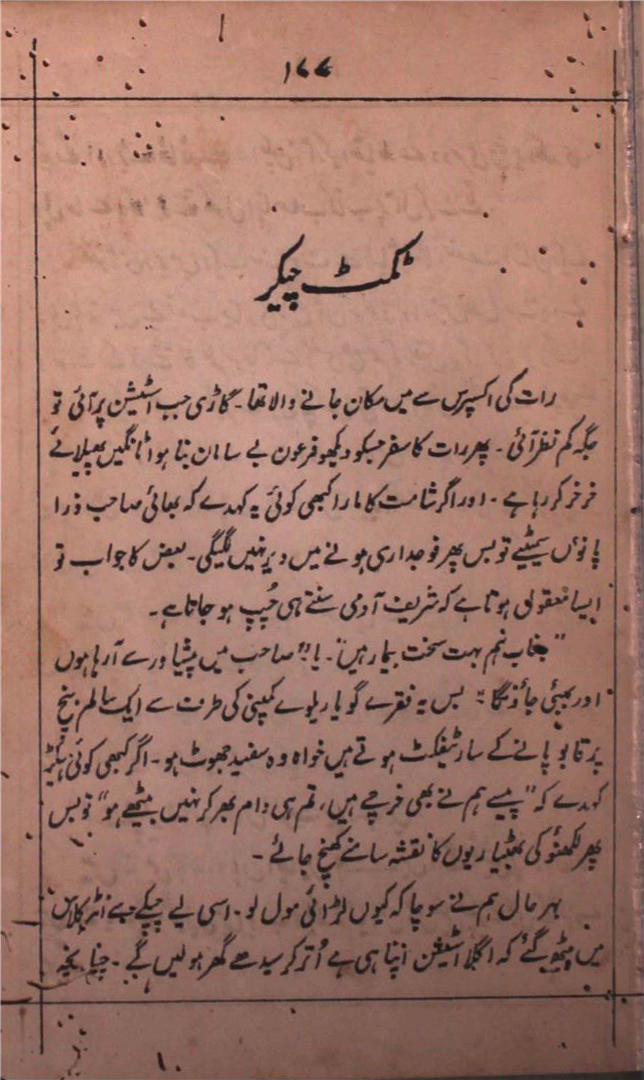 ۱۷۷
ٹکٹ چیکر
رات کی اکسپرس سے میں مکان جانے والا تھا۔ گاڑی جب اسٹیشن پر آئی تو
جگہ کم نظر آئی۔ پھر رات کا سفر جسکو دیکھو فرعون بے سامان بنا ہوا ٹانگیں پھیلائے
خرخر کر رہا ہے۔ اور اگر شامت کا مارا کبھی کوئی یہ کہدے کہ بھائی صاحب ذرا
پانوں سمیٹیے تو بس پھر فوجداری ہونے میں دیر نہیں لگیگی۔ بعض کا جواب تو
ایسا معقول ہوتا ہے کہ شریف آدمی سنتے ہی چُپ ہو جاتا ہے۔
"جناب ہم بہت سخت بیمار ہیں"۔ یا "صاحب میں پشاور سے آ رہا ہوں
اور بمبئی جاؤنگا" بس یہ فقرے گویا ریلوے کمپنی کی طرف سے ایک سالم بنچ
پر قابو پانے کے سارٹیفکٹ ہوتے ہیں خواہ وہ سفید جھوٹ ہو۔ اگر کبھی کوئی ہیکڑ
کہدے کہ "پیسے ہم نے بھی خرچے ہیں، تم ہی دام بھر کر نہیں بیٹھے ہو" تو بس
پھر لکھنؤ کی بھٹیاریوں کا نقشہ سامنے کھینچ جائے۔
بہرحال ہم نے سوچا کہ کیوں لڑائی مول لو۔ اسی لیے چپکے سے انٹر کلاس
میں بیٹھ گئے کہ اگلا اسٹیشن اپنا ہی ہے اُتر کر سیدھے گھر ہو لیں گے۔ چنانچہ